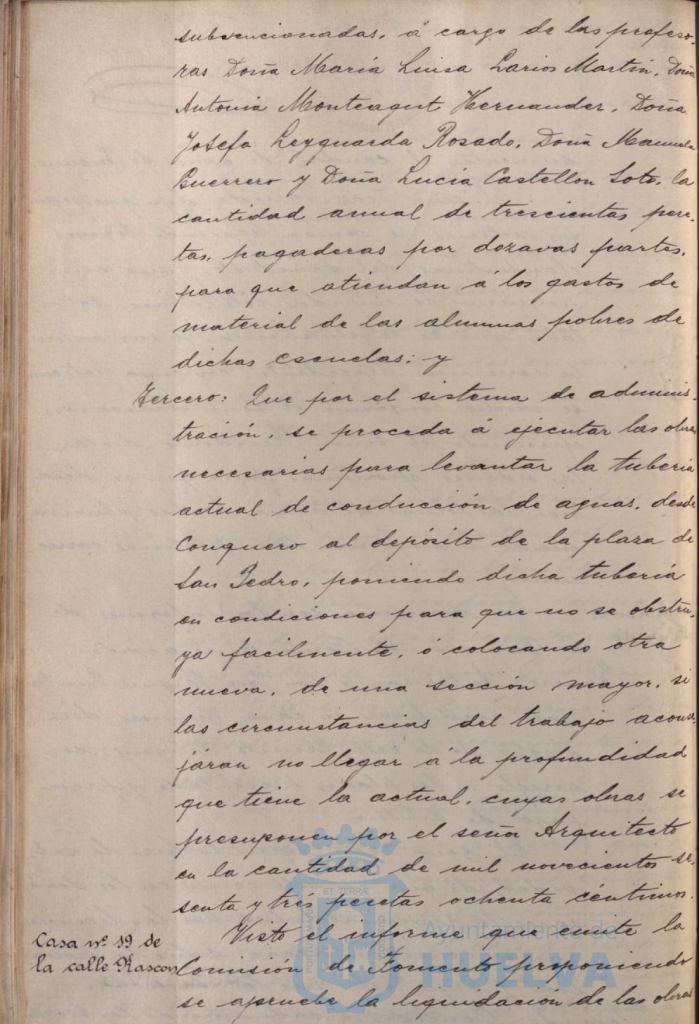 subvencionadas, á cargo de las profeso-
ras Doña María Luisa Larios Martín, Doña
Antonia Monteagut Hernander, Doña
Josefa Leyguarda Rosado, Doña Manuela
Guerrero y Doña Lucía Castellon Soto, la
cantidad anual de trescientas pese-
tas, pagaderas por dozavas partes,
para que atiendan á los gastos de
material de las alumnas pobres de
dichas escuelas; y
Tercero: Que por el sistema de adminis-
tración, se proceda á ejecutar las obras
necesarias para levantar la tubería
actual de conducción de aguas, desde
Conquero al depósito de la plaza de
San Pedro, poniendo dicha tubería
en condiciones para que no se obstru-
ya facilmente, ó colocando otra
nueva, de una sección mayor, si
las circunstancias del trabajo aconse-
járan no llegar á la profundidad
que tiene la actual, cuyas obras se
presuponen por el señor Arquitecto
en la cantidad de mil novecientos se-
senta y trés pesetas ochenta céntimos.
Casa nº 19 de
la calle Rascon
Visto el informe que emite la
Comisión de Fomento proponiendo
se apruebe la liquidación de las obras
ET TERRAE
Ayuntamiento de
HUELVA